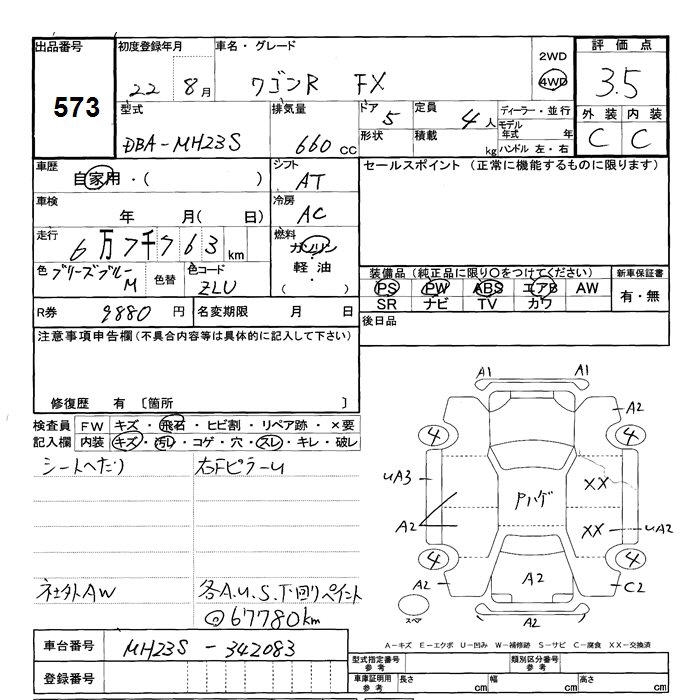 出品番号 初度登録年月 車名・グレード 2WD 評価点
573 22 8月 ワゴンR FX 4WD 3.5
型式 排気量 ドア 5 定員 4人 ディーラー・並行 外装 内装
DBA-MH23S 660cc 形状 積載 kg モデル年式 年 C C
ハンドル 左・右
車歴 自家用・( ) シフト AT セールスポイント (正常に機能するものに限ります)
車検 年 月( 日) 冷房 AC
走行 6万7千763km 燃料 ガソリン
軽油・( )
色 ブリーズブルーM 色替 色コード ZLU 装備品(純正品に限り○をつけてください) 新車保証書
PS PW ABS エアB AW 有・無
SR ナビ TV カワ
R券 9880円 名変期限 月 日 後日品
注意事項申告欄(不具合内容等は具体的に記入して下さい)
修復歴 有 〔箇所 〕
検査員 FW キズ・飛石・ヒビ割・リペア跡・×要
記入欄 内装 キズ・汚レ・コゲ・穴・スレ・キレ・破レ
シートへたり 右FピラーU
社外AW 各A.U.S.下回りペイント
@67780km
A1 A1
A2
4 4
UA3 XX
Pハゲ
A2 XX UA2
4 4
A2 A2 C2
スペア A2
A-キズ E-エクボ U-凹み W-補修跡 S-サビ C-腐食 XX-交換済
車台番号 MH23S-342083
型式指定番号 参考 類別区分番号 参考
登録番号 車庫証明用 参考 長さ cm 幅 cm 高さ cm